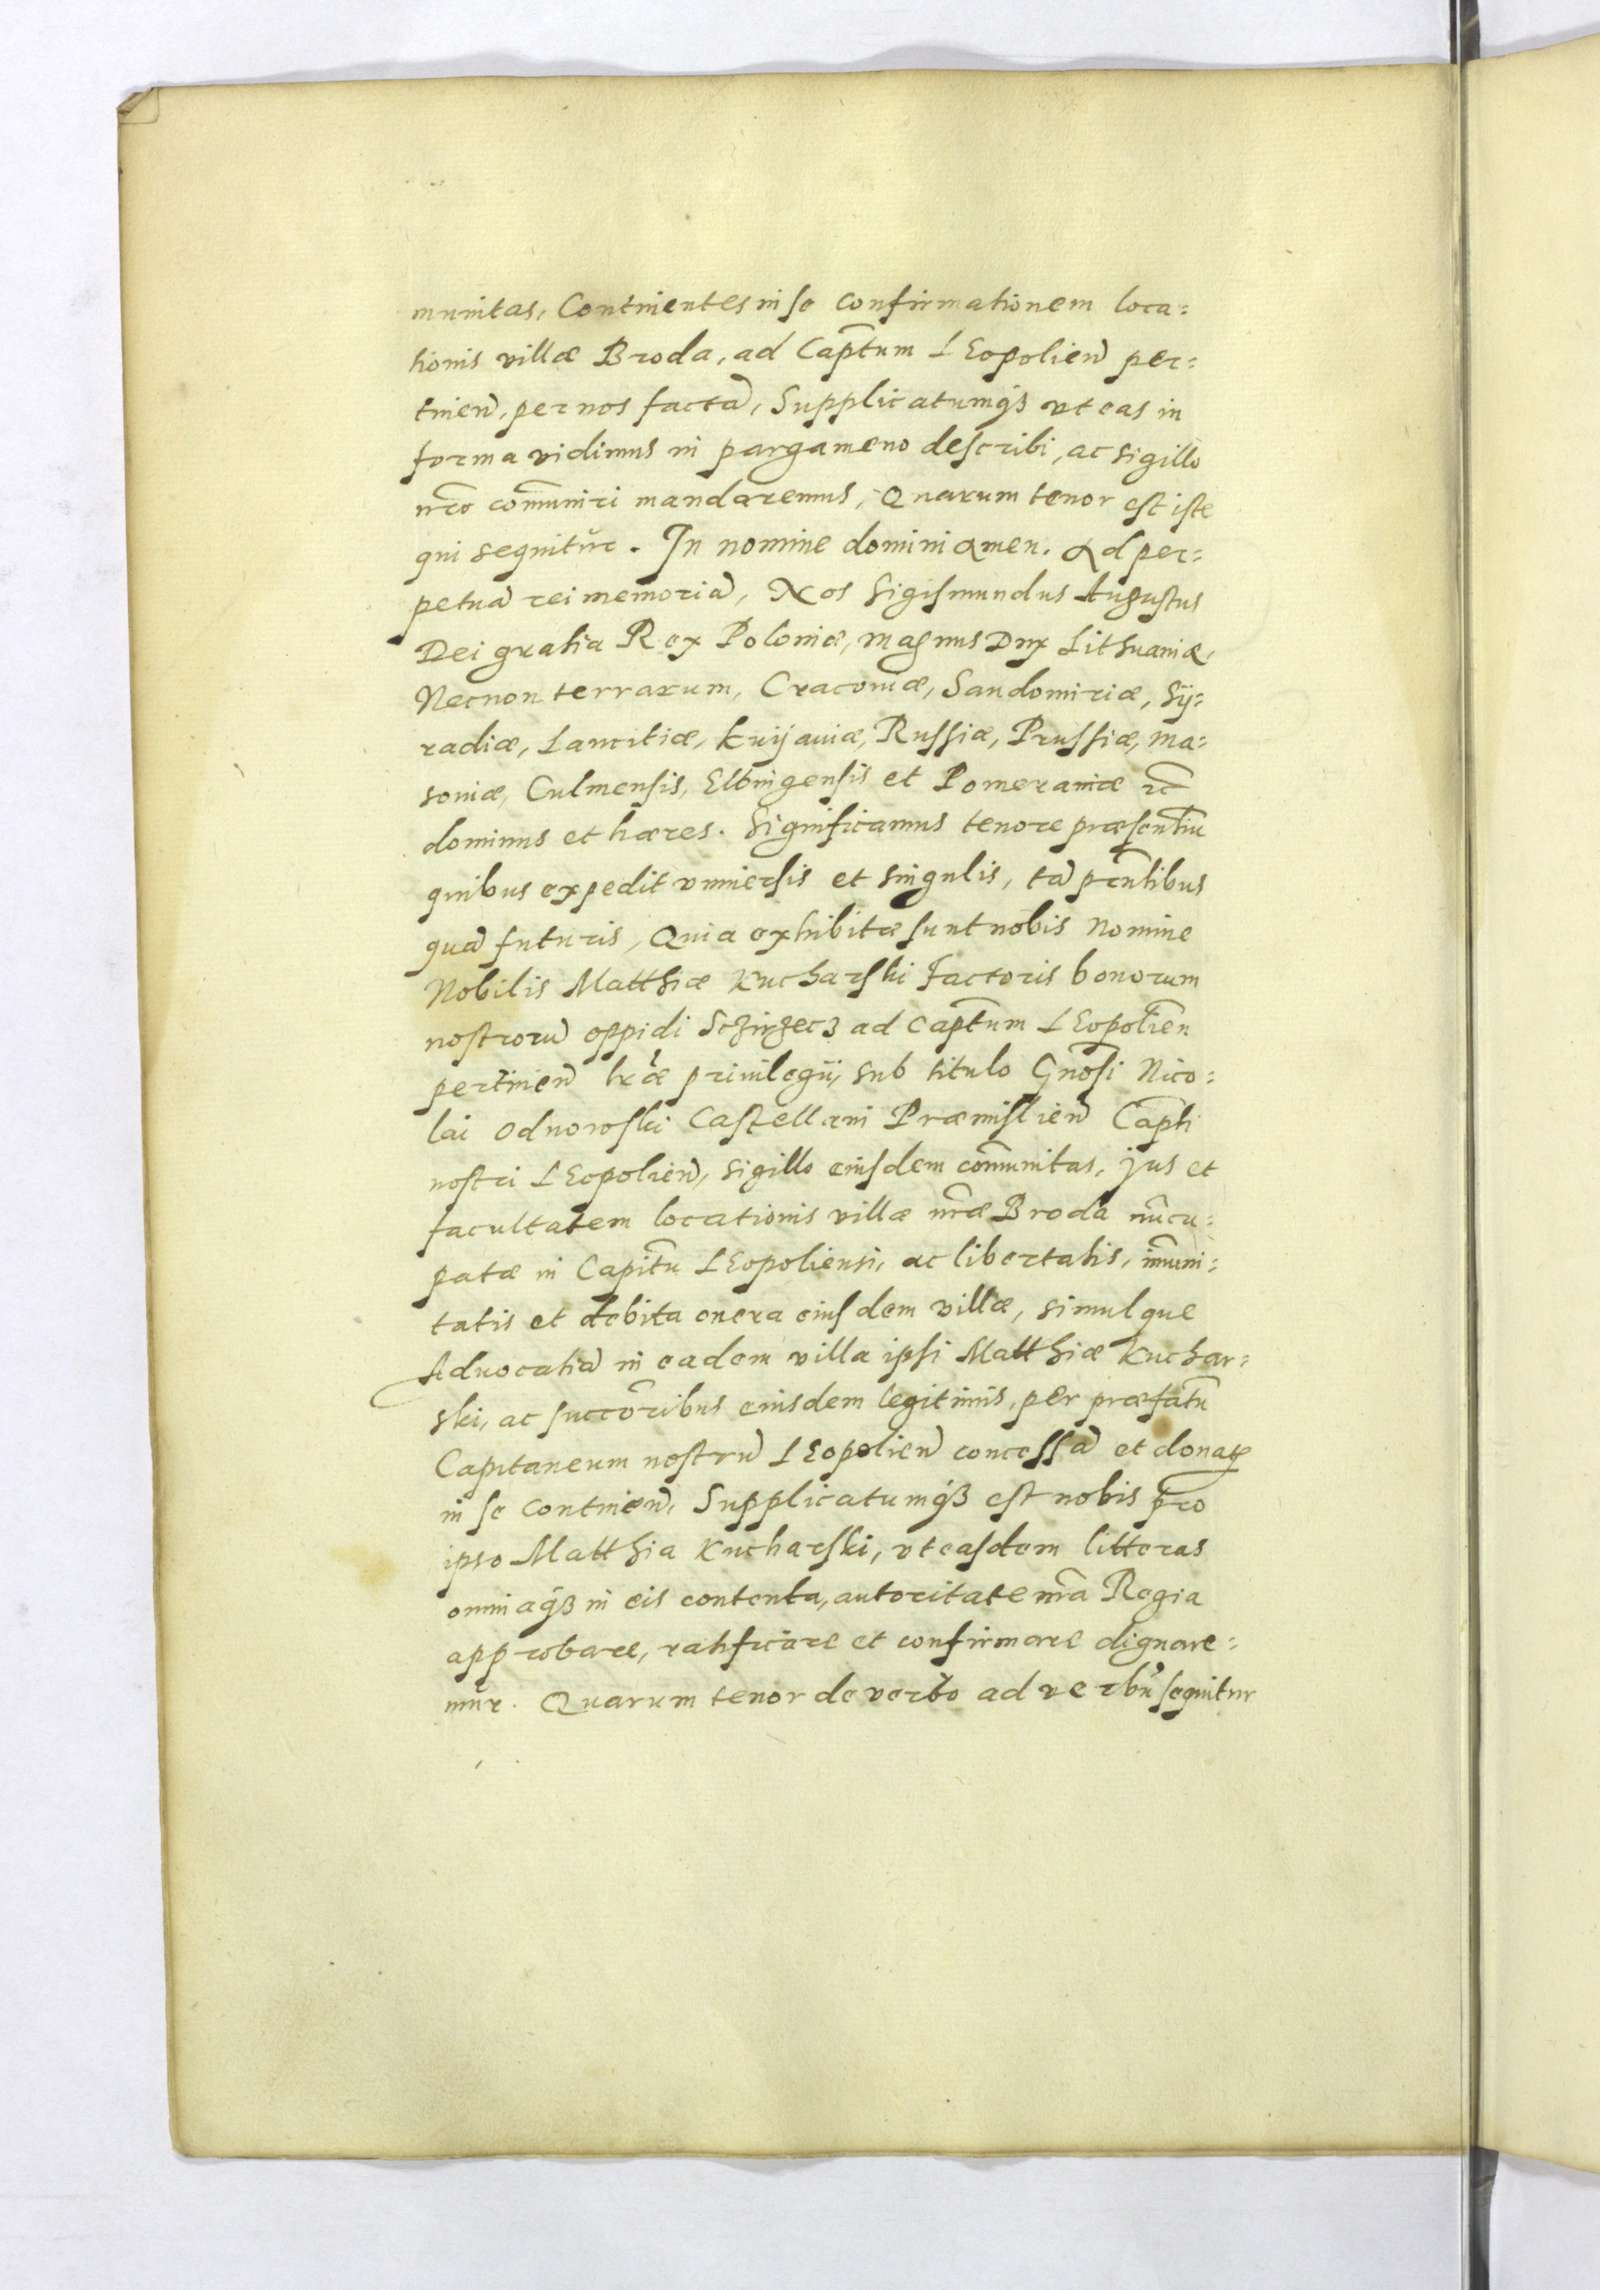 munitas, Continentes in se confirmationem loca=
tionis villæ Broda, ad Cap̃tum LEopolieñ per=
tineñ, per nos factã, Supplicatumqȝ vt eas in
forma vidimus in pargameno describi, ac sigillo
nr̃o com̃uniri mandaremus, Quarum tenor est iste
qui sequitur. In nomine domini amen. Ad per=
petuã rei memoriã, Nos Sigismundus Augustus
Dei gratia Rex Poloniæ, magnus Dux Lithuaniæ,
Necnon terrarum, Cracoviæ, Sandomiriæ, Sÿ=
radiæ, Lanciciæ, Kuijaviæ, Russiæ, Prussiæ, Ma=
soviæ, Culmensis, Elbingensis et Pomeraniæ ꝛc̃
dominus et hæres. Significamus tenore præsentiũ
quibus expedit vniversis et singulis, tã prñtibus
quã futuris, Quia exhibitæ sunt nobis nomine
Nobilis Matthiæ Kucharski Factoris bonorum
nostrorũ oppidi Sczirzecz ad Cap̃tum LEopolieñ
pertineñ lr̃æ privilegii, sub titulo Gñosi Nico=
lai Odnowski Castellani Præmislieñ Cap̃ti
nostri LEopolieñ, sigillo eiusdem com̃unitas, jus et
facultatem locationis villæ nr̃æ Broda nũcu=
patæ in Capitũ LEopoliensi, ac libertatis, im̃uni=
tatis et debita onera eiusdem villæ, simulque
Advocatiã in eadem villa ipsi Matthiæ Kuchar=
ski, ac succõribus eiusdem legitimis, per præfatũ
Capitaneum nostrũ LEopolieñ concessã et donatã
in se contineñ, Supplicatumqȝ est nobis pro
ipso Matthia Kucharski, vt easdem litteras
omniaqȝ in eis contenta, autoritate nr̃a Regia
approbare, ratificare et confirmare dignare=
mur. Quarum tenor de verbo ad verbũ sequitur